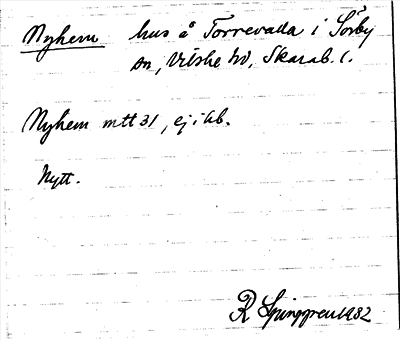 Nyhem hus å Torrevalla i Sörby
sn, Vilske hd, Skarab. l.
Nyhem mtt 31, ej i kb.
Nytt.
R Ljunggren 1982